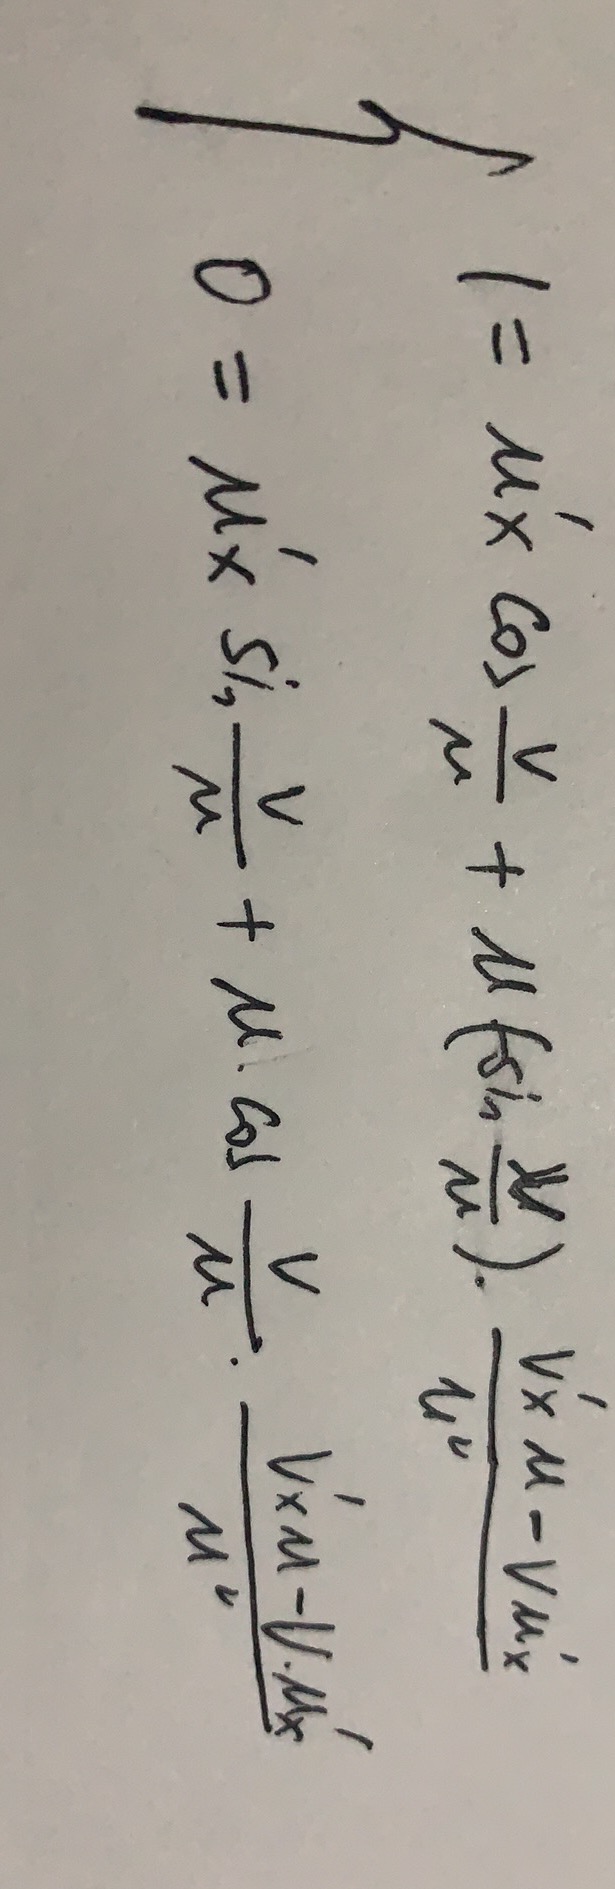 { 1 = u'x cos v/u + u (-sin v/u) · (v'x u - v u'x)/u²
0 = u'x sin v/u + u · cos v/u · (v'x u - v · u'x)/u²